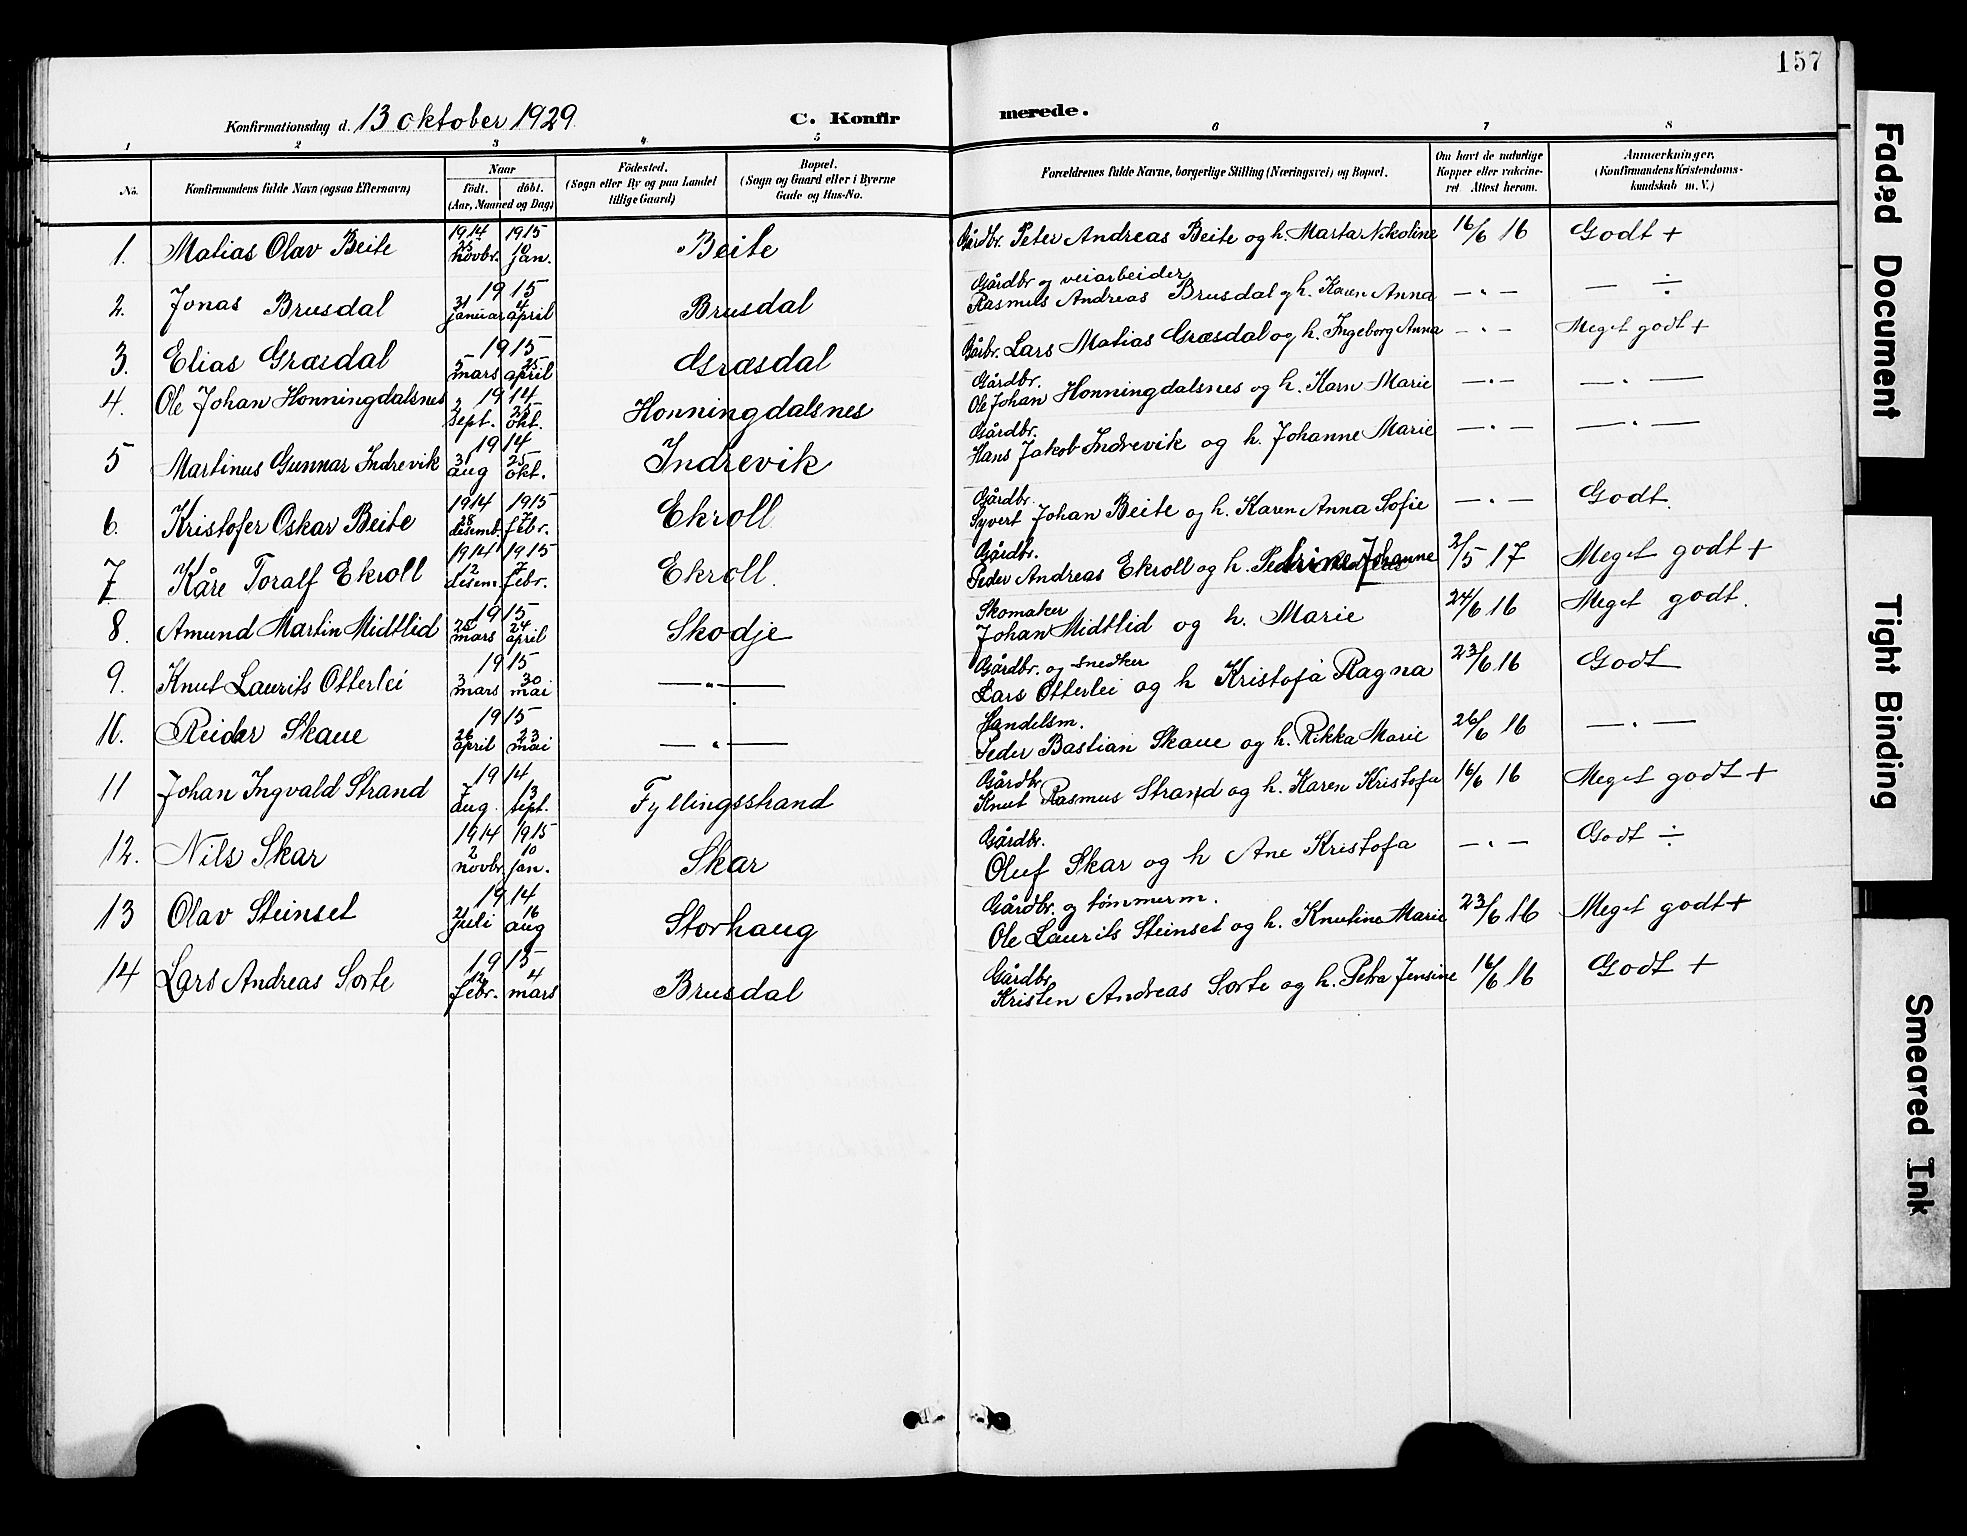 157
Konfirmationsdag d. 13 oktober 1929. C. Konfir merede.
1 2 3 4 5 6 7 8
No. Konfirmandens fulde Navn (ogsaa Efternavn) Naar født. døbt. (Aar, Maaned og Dag) Fødested. (Sogn eller By og paa Landet tillige Gaard) Bopæl. (Sogn og Gaard eller i Byerne Gade og Hus-No. Forældrenes fulde Navne, borgerlige Stilling (Næringsvei) og Bopæl. Om havt de naturlige Kopper eller vakcineret Attest herom. Anmærkninger. (Konfirmandens Kristendomskundskab m. V.)
1. Matias Olav Beite 1914 25 novbr. 1915 10 jan. Beite Gårdbr. Peter Andreas Beite og h. Marta Nikoline 16/6 16 Godt +
2. Jonas Brusdal 1915 31 januar 4 april Brusdal Gårdbr og veiarbeider Rasmus Andreas Brusdal og h. Karen Anna — " — — ÷
3. Elias Græsdal 1915 5 mars 25 april Græsdal Gårbr. Lars Matias Græsdal og h. Ingeborg Anna — " — Meget godt +
4. Ole Johan Honningdalsnes 1914 2 Sept. 25 okt. Honningdalsnes Gårdbr. Ole Johan Honningdalsnes og h. Karn Marie — " — — " —
5 Martinus Gunnar Indrevik 1914 31 aug 25 okt. Indrevik Gårdbr. Hans Jakob Indrevik og h. Johanne Marie — " — — " —
6. Kristofer Oskar Beite 1914 28 desemb. 1915 7 febr. Ekroll Gårdbr. Syvert Johan Beite og h. Karen Anna Sofie — " — Godt.
7. Kåre Toralf Ekroll 1914 12 desem. 1915 7 febr. Ekroll. Gårdbr. Peder Andreas Ekroll og h. Pedrine Johanne 2/5 17 Meget godt +
8. Amund Martin Midtlid 1915 25 mars 24 april Skodje Skomaker Johan Midtlid og h. Marie 24/6 16 Meget godt.
9. Knut Laurits Otterlei 1915 3 mars 30 mai — " — Gårdbr. og snedker Lars Otterlei og h Kristofa Ragna 23/6 16 Godt
10. Reidar Skaue 1915 26 april 23 mai — " — Handelsm. Peder Bastian Skaue og h. Rikka Marie 26/6 16 — " —
11 Johan Ingvald Strand 1914 7 aug. 13 sept. Fyllingsstrand Gårdbr. Knut Rasmus Strand og h. Karen Kristofa 16/6 16 Meget godt +
12. Nils Skar 1914 2 novbr 1915 10 jan. Skar Gårdbr. Oluf Skar og h Ane Kristofa — " — Godt ÷
13 Olav Steinset 1914 21 juli 16 aug Storhaug Gårdbr. og tømmerm. Ole Laurits Steinset og h. Knutine Marie 23/6 16 Meget godt +
14 Lars Andreas Sorte 1915 13 febr. 4 mars Brusdal Gårdbr. Kristen Andreas Sorte og h. Petra Jensine 16/6 16 Godt +
Faded Document
Tight Binding
Smeared Ink